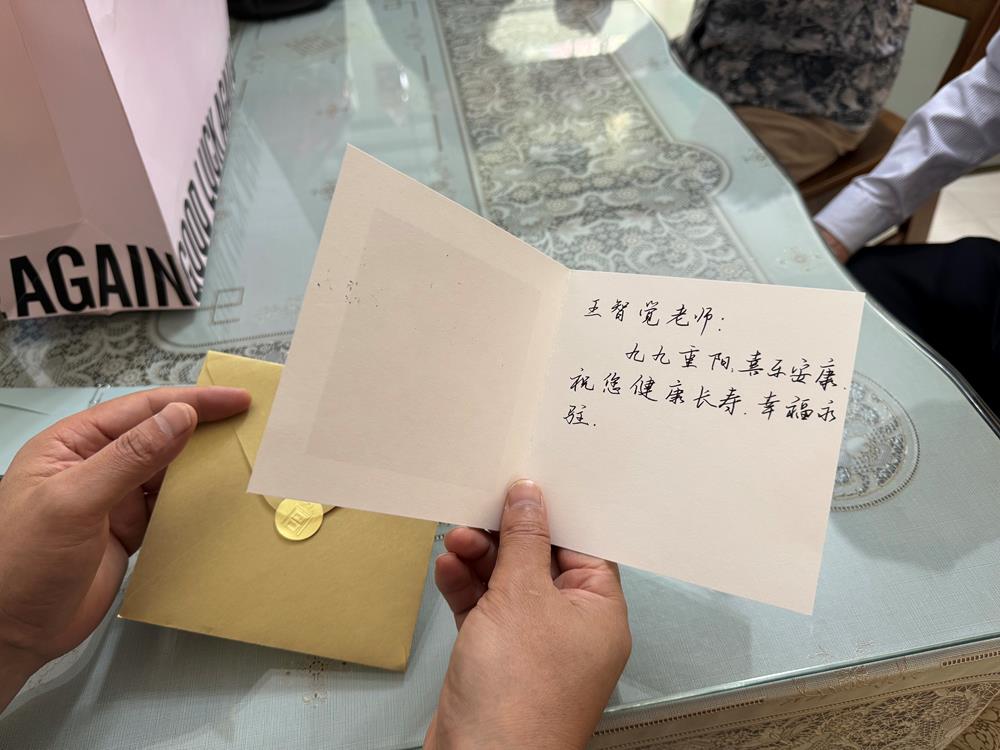 AGAIN
GOOD LUCK AGAIN
王智觉老师：
九九重阳.喜乐安康.
祝您健康长寿.幸福永
驻.